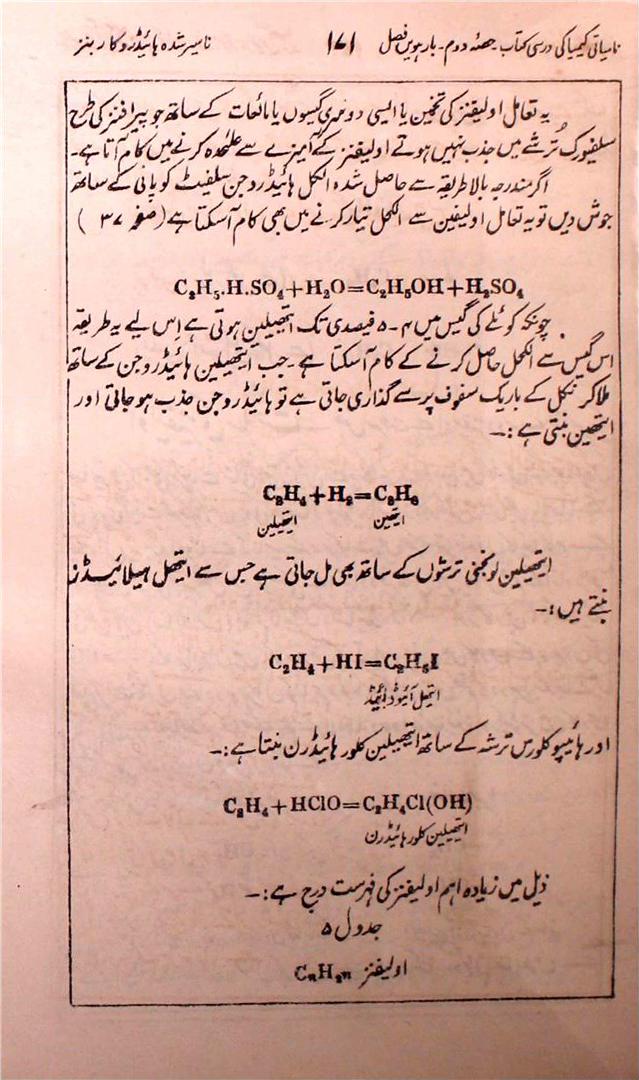 نامیاتی کیمیا کی درسی کتاب۔ حصّہ دوم۔ بارھویں فصل ۱۷۱ ناسیر شدہ ہائیڈروکاربنز
یہ تعامل اولیفنز کی تخمین یا ایسی دوسری گیسوں یا مائعات کے ساتھ جو پیرافنز کی طرح
سلفیورک تُرشے میں جذب نہیں ہوتے اولیفنز کے آمیزے سے علٰحدہ کرنے میں کام آتا ہے۔
اگر مندرجہ بالا طریقہ سے حاصل شدہ الکل ہائیڈروجن سلفیٹ کو پانی کے ساتھ
جوش دیں تو یہ تعامل اولیفین سے الکحل تیار کرنے میں بھی کام آسکتا ہے (صفحہ ۳۷ )
C₂H₅.H.SO₄+H₂O=C₂H₅OH+H₂SO₄
چونکہ کوئلے کی گیس میں ۴-۵ فیصدی تک ایتھیلین ہوتی ہے اِس لیے یہ طریقہ
اس گیس سے الکحل حاصل کرنے کے کام آسکتا ہے۔ جب ایتھیلین ہائیڈروجن کے ساتھ
ملا کر نکل کے باریک سفوف پر سے گذاری جاتی ہے تو ہائیڈروجن جذب ہو جاتی اور
ایتھین بنتی ہے:۔
C₂H₄+H₂=C₂H₆
ایتھین ایتھیلین
ایتھیلین لونجنی ترشوں کے ساتھ بھی مل جاتی ہے جس سے ایتھل ہیلائیڈز
بنتے ہیں:۔
C₂H₄+HI=C₂H₅I
ایتھل آئیوڈائیڈ
اور ہائیپوکلورس ترشہ کے ساتھ ایتھیلین کلورہائیڈرن بنتا ہے:۔
C₂H₄+HClO=C₂H₄Cl(OH)
ایتھیلین کلورہائیڈرن
ذیل میں زیادہ اہم اولیفنز کی فہرست درج ہے:۔
جدول ۵
اولیفنز CₙH₂ₙ